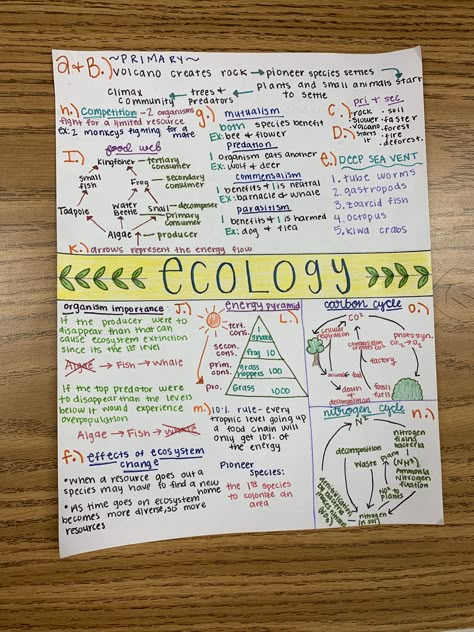 a + B.) ~PRIMARY~
volcano creates rock → pioneer species settles → plants and small animals start to settle
Climax community ← trees + predators ←
h.) competition - 2 organisms
fight for a limited resource
ex: 2 monkeys fighting for a mate
g.) mutualism
both species benefit
Ex: bee + flower
predation
1 organism eats another
Ex: wolf + deer
commensalism
1 benefits + 1 is neutral
Ex: barnacle + whale
parasitism
1 benefits + 1 is harmed
Ex: dog + flea
C.) pri + sec
rock · soil
slower · faster
D.) volcano starts it · forest fire, deforest.
e.) DEEP SEA VENT
1. tube worms
2. gastropods
3. zoarcid fish
4. octopus
5. kiwa crabs
I. food web
Kingfisher → tertiary consumer
small fish
Frog → secondary consumer
Tadpole
Water Beetle
snail → decompose
primary consumer
Algae → producer
K.) arrows represent the energy flow
ECOLOGY
organism importance J.)
If the producer were to
disappear than that can
cause ecosystem extinction
since its the 1st level
Algae → Fish → whale
If the top predator were to
disappear than the levels
below it would experience
overpopulation
Algae → Fish → whale
f.) effects of ecosystem
change
• When a resource goes out a
species may have to find a new
home
• As time goes on ecosystem
becomes more diverse, so more
resources
energy pyramid
L.)
tert. cons.
1 snake
secon. cons.
frog 10
prim. cons.
grass hoppers 100
pro.
Grass 1000
m.) 10% rule - every
trophic level going up
a food chain will
only get 10% of
the energy
Pioneer
species:
the 1st species
to colonize an
area
carbon cycle O.)
CO²
cellular respiration
combustion
photosyn.
CO₂→O₂
factory
animal
death + decomposition
fossil fuels
nitrogen cycle n.)
N²
nitrogen fixing bacteria
decomposition
waste
plants
(NH³)
Ammonia
Nitrogen
fixation
plants
nitrogen in soil